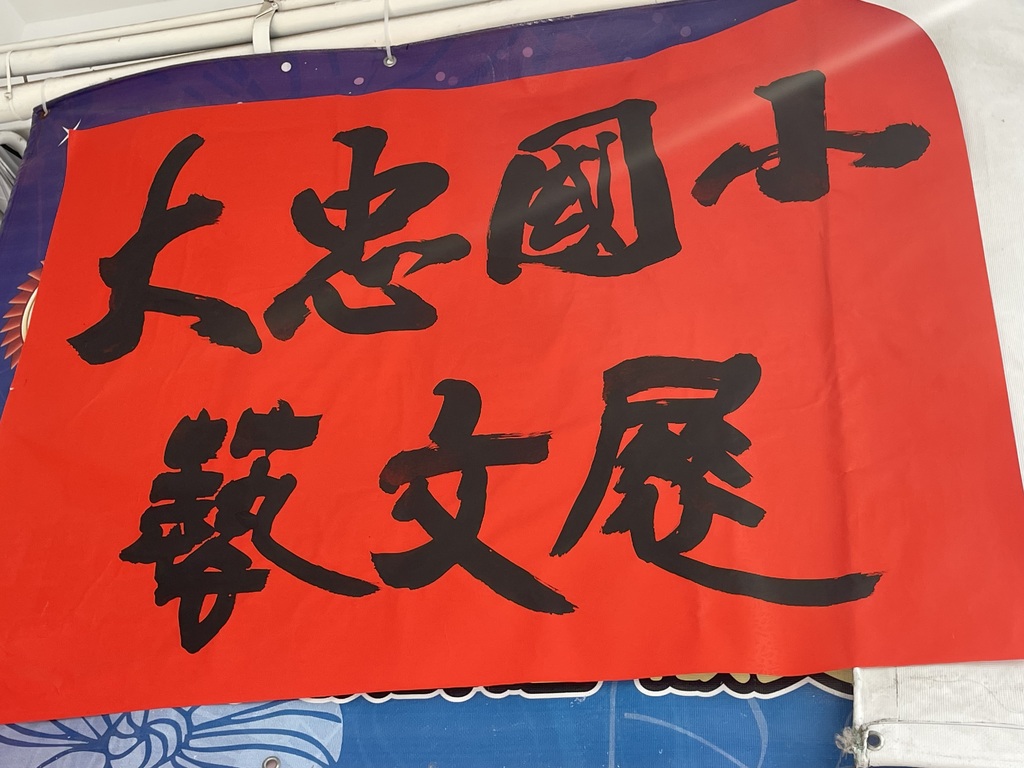 大忠國小
藝文展